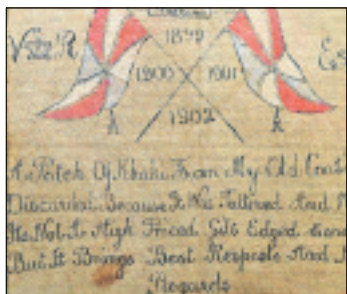 1899
V R
E
1900 1901
1902
A Patch Of Khaki From My Old Coat
Discarded Because It Was Tattered And
Its Not A High Priced Gilt Edged
But It Brings Best Respects And
Regards